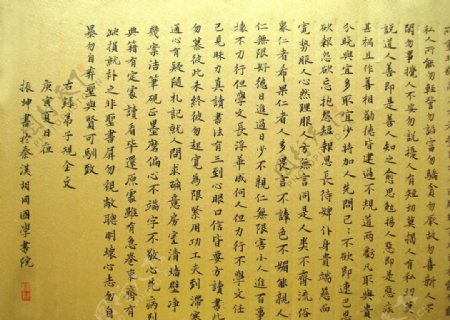 私人所能勿輕訾勿諂富勿驕貧勿厭故勿喜新人不
閒勿事攪人不安勿話擾人有短切莫揭人有私切莫
說道人善即是善人知之愈思勉揚人惡即是惡疾之
甚禍且作善相勸德皆建過不規道兩虧凡取與貴
分曉與宜多取宜少將加人先問己己不欲即速已恩
欲報怨欲忘抱怨短報恩長待婢仆身貴端慈而
寬勢服人心然理服人方無言同是人類不齊流俗
衆仁者希果仁者人多畏言不諱色不媚能親人
仁無限好德日進過日少不親仁無限害小人進百事
壞不力行但學文長浮華成何人但力行不學文任
己見昧力真讀書法有三到心眼口信皆要方讀書此
勿慕彼此未終彼勿起寬為限緊用功工夫到滯塞
通心有疑隨札記就人問求確意房室清墻壁淨
幾案潔筆硯正墨磨偏心不端字不敬心先病列
典籍有定處讀看畢還原處雖有急卷束齊有
缺損就補之非聖書屏勿視敝聰明壞心志勿自
暴勿自弃聖與賢可馴致
古錄弟子規全文
庚寅夏日在
振坤書於秦漢胡同國學書院